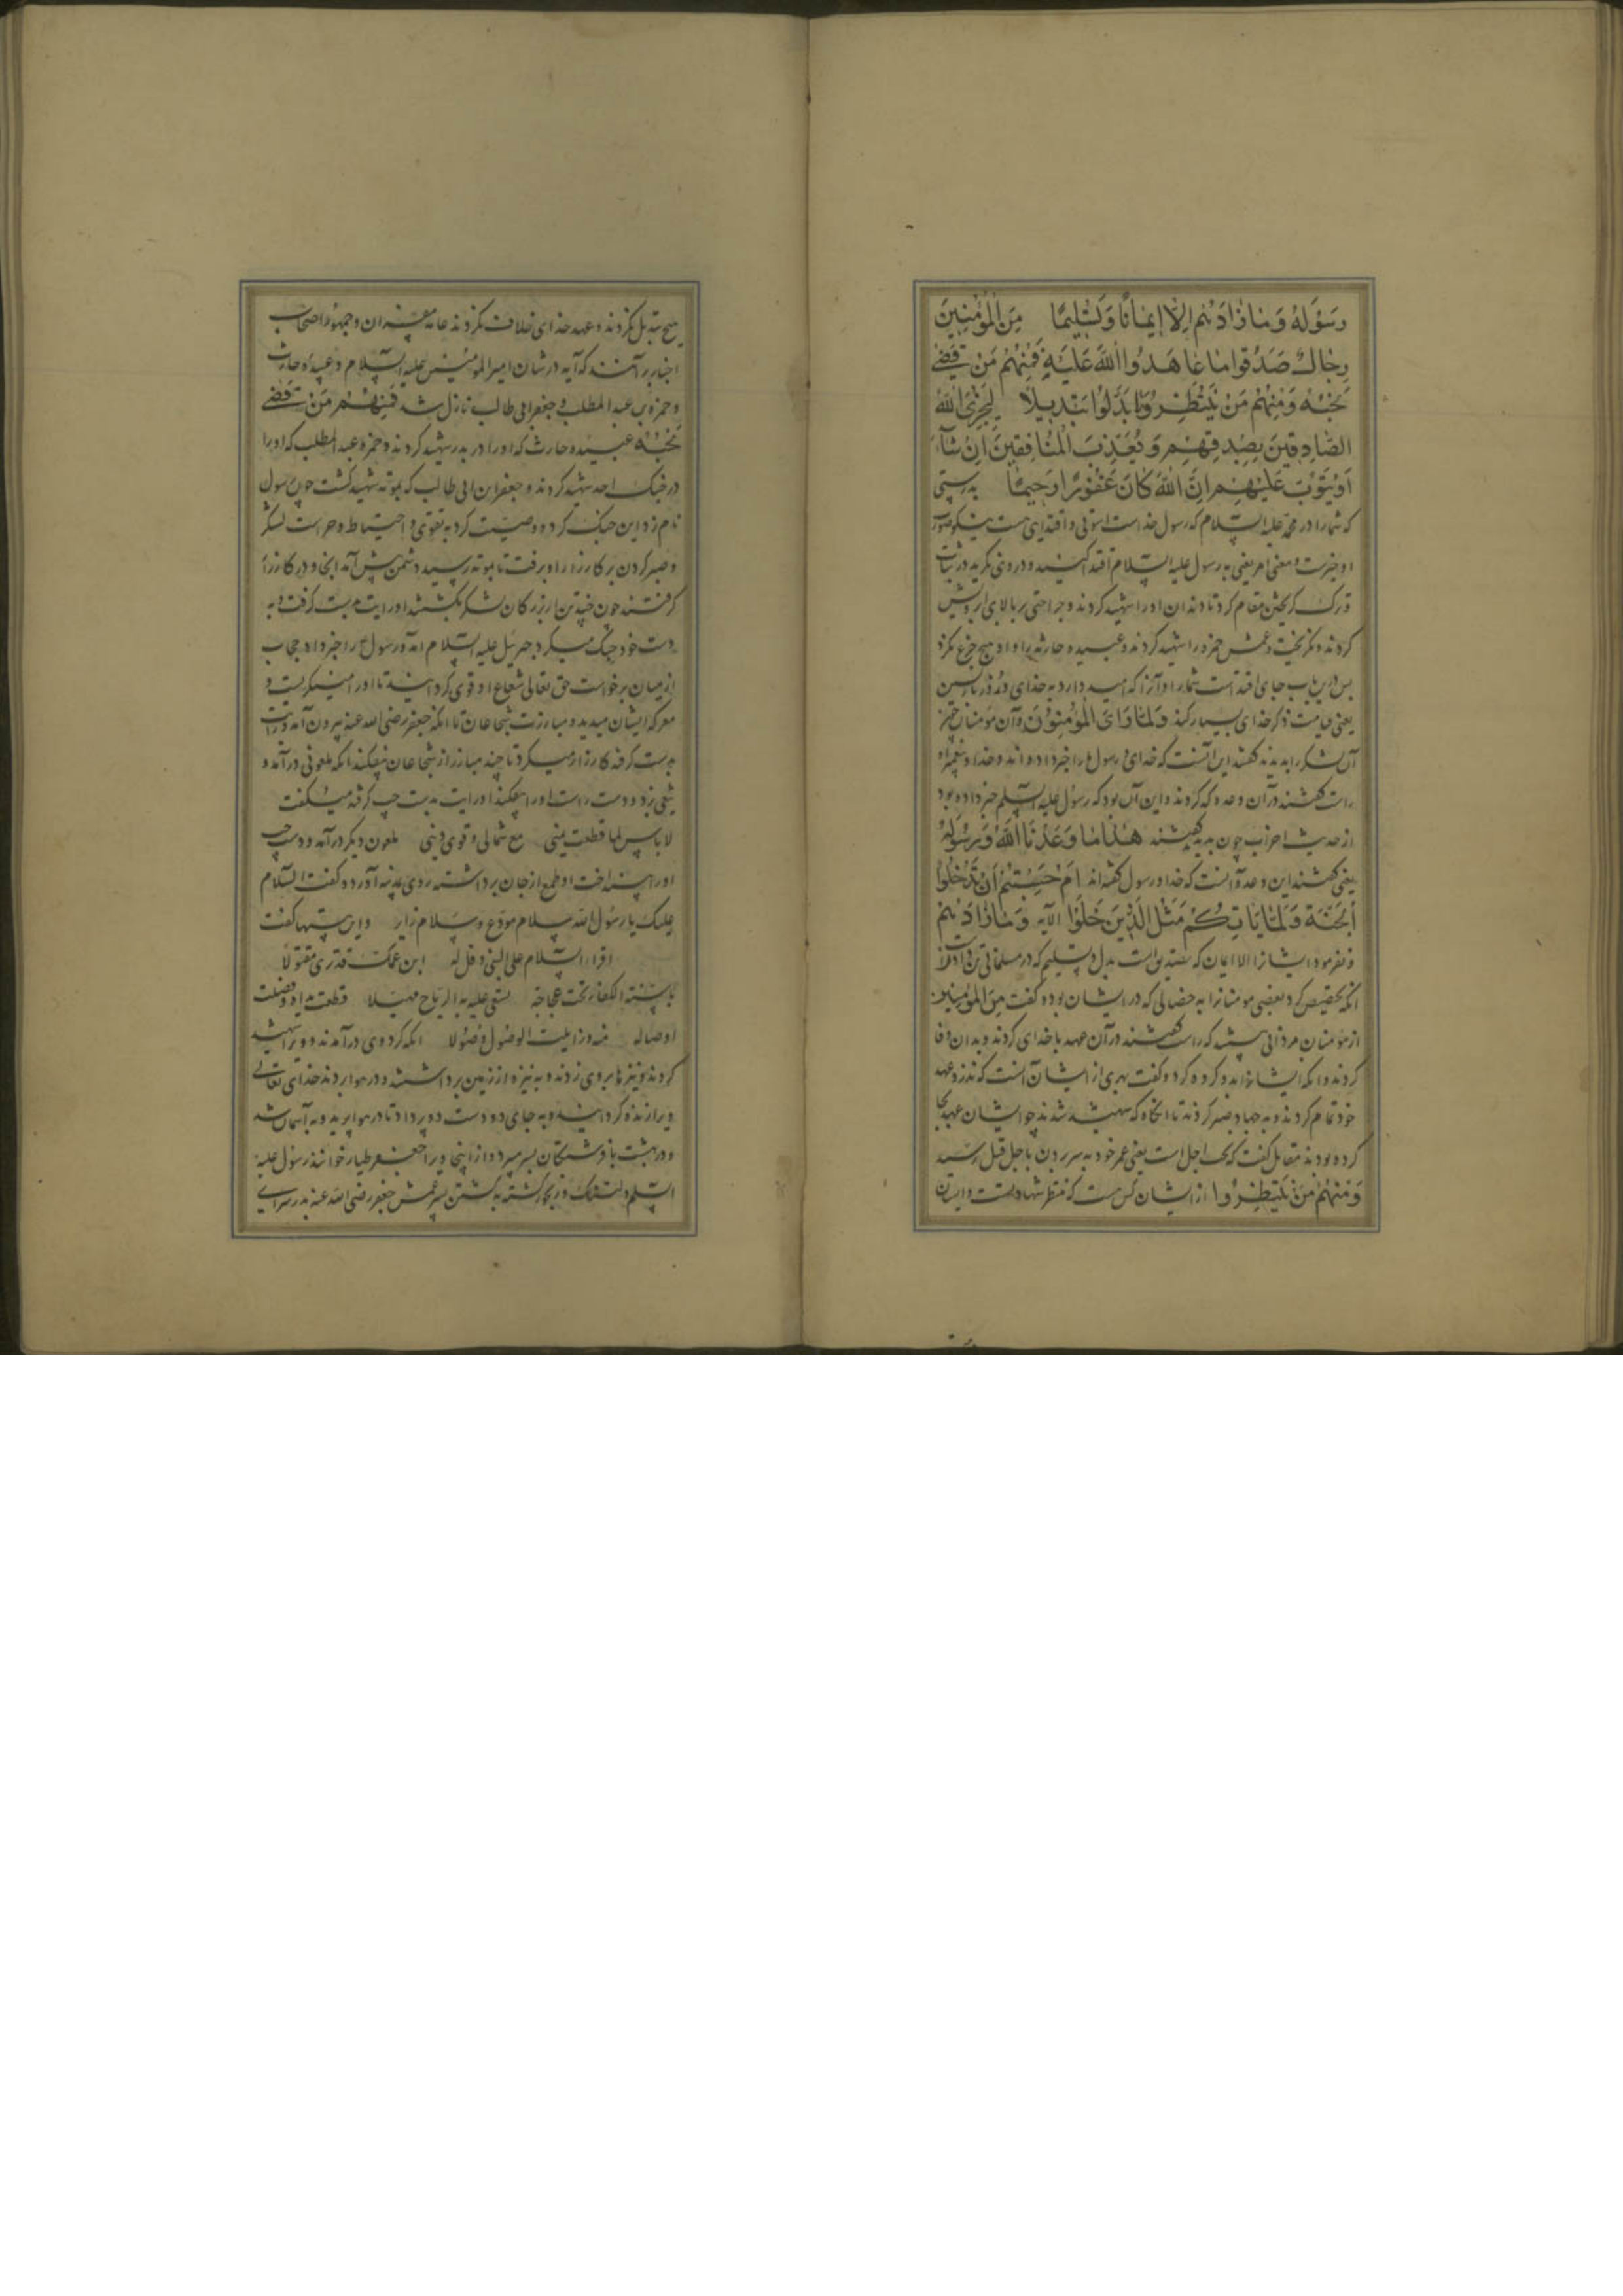 رَسُولُهُ وَمَا زَادَهُمْ اِلَّا اِيمَانًا وَتَسْلِيمًا مِنَ الْمُؤْمِنِينَ
رِجَالٌ صَدَقُوا مَا عَاهَدُوا اللّٰهَ عَلَيْهِ فَمِنْهُمْ مَنْ قَضٰى
نَحْبَهُ وَمِنْهُمْ مَنْ يَنْتَظِرُ وَمَا بَدَّلُوا تَبْدِيلًا لِيَجْزِيَ اللّٰهُ
الصَّادِقِينَ بِصِدْقِهِمْ وَيُعَذِّبَ الْمُنَافِقِينَ اِنْ شَآءَ
اَوْ يَتُوبَ عَلَيْهِمْ اِنَّ اللّٰهَ كَانَ غَفُورًا رَحِيمًا بدرستی
که شما را در محمد علیه السلام که رسول خداست اسوتی و اقتدایی هست نیکو
او خبرست و معنی امر یعنی به رسول علیه السلام اقتدا کنید و در وی نگرید در ثبات
و ترک گریختن مقام کرد تا دندان او را شهید کردند و جراحتی بر بالای ابروش
کردند و نگریخت و عمش حمزه را شهید کردند و عبیده حارثه را و او هیچ جزع نکرد
پس درین باب جای اقتداست شما را و آنرا که امید دارد به خدای و روز بازپسین
یعنی قیامت ذکر خدای بسیار کند وَلَمَّا رَاَى الْمُؤْمِنُونَ و آن مؤمنان چون
آن لشکر را بدیدند گفتند این آنست که خدای و رسول ما را خبر داده اند و خدا و پیغمبر او
راست گفتند در آن وعده که کردند و این آن بود که رسول علیه السلم خبر داده بود
از حدیث احزاب چون بدیدند گفتند هٰذَا مَا وَعَدَنَا اللّٰهُ وَرَسُولُهُ
یعنی گفتند این وعده آنست که خدا و رسول گفته اند اَمْ حَسِبْتُمْ اَنْ تَدْخُلُوا
الْجَنَّةَ وَلَمَّا يَاْتِكُمْ مَثَلُ الَّذِينَ خَلَوْا الآیه وَمَا زَادَهُمْ
و نفزمود ایشانرا الا ایمان که تصدیق است بدل و تسلیم که در مسلمانی
انگه تخصیص کرد بعضی مؤمنانرا به خصالی که در ایشان بود و گفت مِنَ الْمُؤْمِنِينَ
از مؤمنان مردانی هستند که راست گفتند در آن عهد با خدای کردند و بدان وفا
کردند و انگه ایشانرا به دو گروه کرد و گفت بهری از ایشان آنست که نذر و عهد
خود تمام کردند و به جهاد صبر کردند تا آنگاه که شهید شدند چو ایشان عهد
کرده بودند مقاتل گفت که نحب اجل است یعنی عمر خود به سر بردن با اجل قبل رسید
وَمِنْهُمْ مَنْ يَنْتَظِرُوا از ایشان کس هست که منتظر شهادتست و ایشان
هیچ تبدیل نکردند و عهد خدای خلاف نکردند عامه مفسران و جمهور اصحاب
اخبار برآنند که آیه در شان امیر المؤمنین علیه السلام و عبیده حارث
و حمزه بن عبد المطلب و جعفر ابی طالب نازل شد فَمِنْهُمْ مَنْ قَضٰى
نَحْبَهُ عبیده حارث که او را در بدر شهید کردند و حمزه عبد المطلب که او را
در جنگ احد شهید کردند و جعفر ابن ابی طالب که بموته شهید گشت چون رسول
نام زد این جنگ کرده وصیت کرد به تقوی و احتیاط و حراست لشکر
و صبر کردن بر کارزار او برفت تا بموته رسید دشمن پیش آمد آنجا و در کارزار
گرفتند چون چند تن از بزرگان لشکر بکشتند او رایت بدست گرفت و به
دست خود جنگ میکرد جبرئیل علیه السلام آمد و رسول ع را خبر داد و حجاب
از میان برخواست حق تعالی شعاع او قوی گردانید تا او را مینگریست و
معرکه ایشان میدید و مبارزت شجاعان تا انکه جعفر رضی الله عنه بیرون آمد و رایت
بدست گرفته کارزار میکرد تا چند مبارز از شجاعان بیفکند تا انکه ملعونی درآمد و
تیغی زد و دست راست او را بیفکند او رایت بدست چپ گرفته میگفت
لا باس لما قطعت یمنی مع شمالی و قوی دینی ملعون دیگر درآمد و دست چپ
او را بینداخت او طمع از جان برداشته روی بمدینه آورد و گفت السلام
علیک یا رسول الله سلام مودع و سلام زایر و این بیتها گفت
اقراء السلام علی النبی و قل له ابن عمک قد تری مقتولا
باسنة الکفار تحت عجاجة تسفی علیه به الریاح مهیلا
اوصاله انگه گرد وی درآمدند و ویرا شهید
کردند و نیزها بر وی زدند و به نیزه از زمین برداشتند و در هوا بردند خدای تعالی
ویرا زنده گردانید و به جای دو دست دو پر داد تا در هوا بپرید و به آسمان شد
و در بهشت با فرشتگان بسر میبرد و از اینجا ویرا جعفر طیار خوانند رسول علیه
السلم دلتنگ و رنجور گشته به کشتن پسر عمش جعفر رضی الله عنه بدر سرای